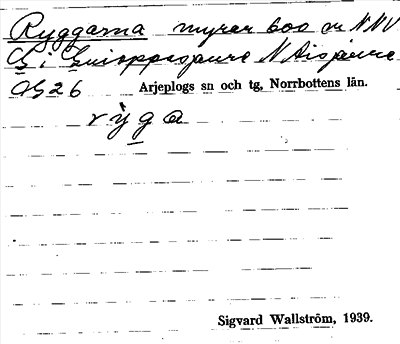 Ryggarna myrar 600 m NNV
G i Guioppasjaure N Aisjaure
GS26 Arjeplogs sn och tg, Norrbottens län.
rỳga
Sigvard Wallström, 1939.